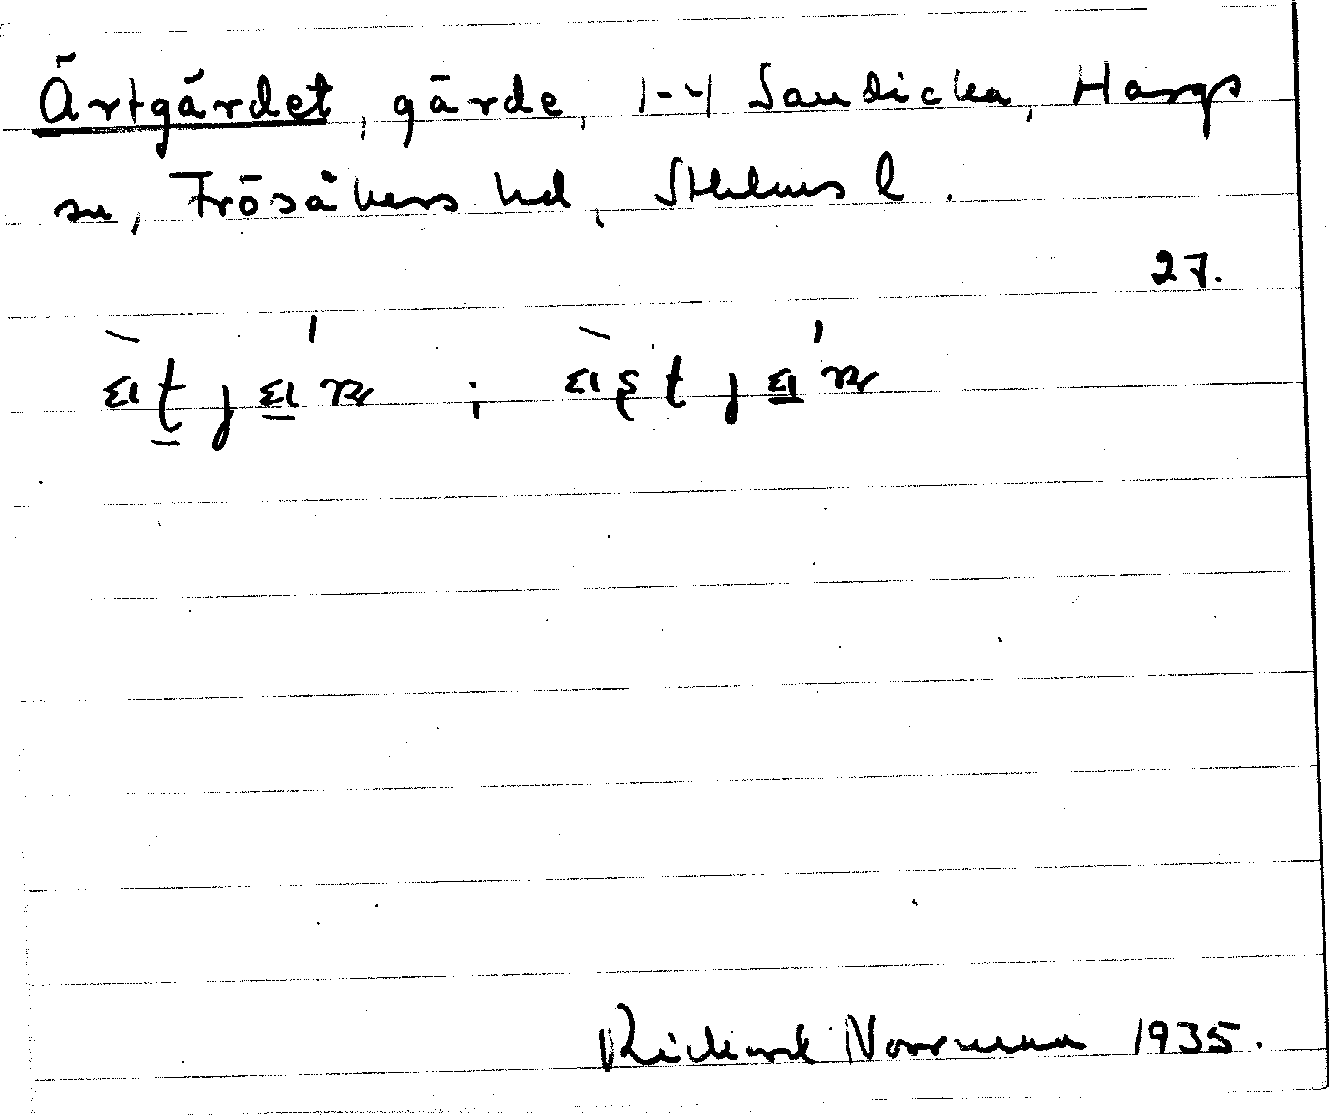 Ärtgärdet, gärde, 1-4 Sandicka, Hargs
sn, Frösåkers hd, Sthlms l.
27.
Richard Norrman 1935.